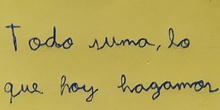 Todo suma, lo
que hoy hagamos